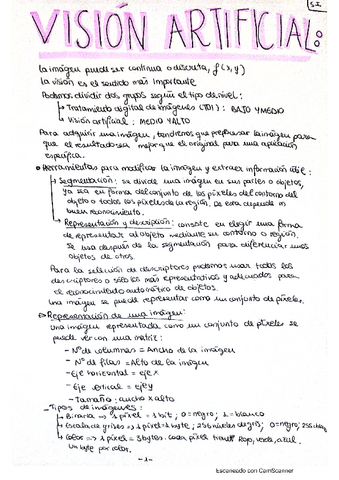 S.I
VISIÓN ARTIFICIAL:
La imágen puede ser continua o discreta, f(x,y)
La visión es el sentido más importante
Podemos dividir dos grupos según el tipo de nivel:
Tratamiento digital de imágenes (TDI): BAJO Y MEDIO
Visión artificial: MEDIO Y ALTO
Para adquirir una imágen, tendremos que preprocesar la imágen para
que el resultado sea mejor que el original para una aplicación
específica.
Herramientas para modificar la imagen y extraer información útil:
Segmentación: se divide una imágen en sus partes o objetos,
ya sea en forma del conjunto de los píxeles del contorno del
objeto o todos los píxeles de la región. De esta depende un
buen reconocimiento.
Representación y descripción: consiste en elegir una forma
de representar al objeto mediante su contorno o región.
Se usa después de la segmentación para diferenciar unos
objetos de otros.
Para la selección de descriptores podemos usar todos los
descriptores o sólo los más representativos y adecuados para
el reconocimiento automático de objetos.
Una imágen se puede representar como un conjunto de píxeles.
Representación de una imágen:
Una imágen representada como un conjunto de píxeles se
puede ver con una matriz:
- Nº de columnas = Ancho de la imágen
- Nº de filas = Alto de la imágen
- Eje horizontal = eje x
- Eje vertical = eje y
- Tamaño: ancho x alto
- Tipos de imágenes:
Binaria => 1 píxel = 1 bit; 0 = negro; 1 = blanco
Escala de grises => 1 píxel = 1 byte; 256 niveles de gris; 0 = negro; 255
Color => 1 píxel = 3 bytes. Cada píxel Rojo, verde, azul.
Un byte por color.
- 1 -
Escaneado con CamScanner